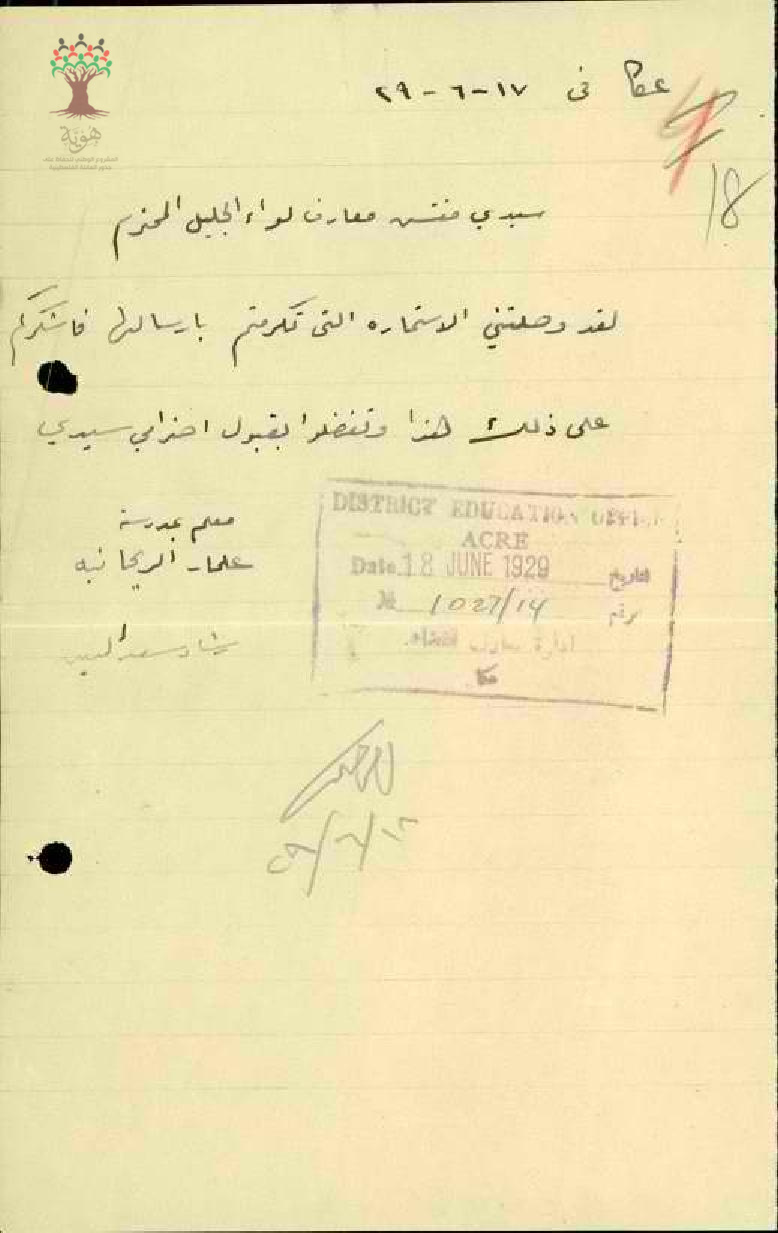 هوية
المشروع الوطني للحفاظ على
جذور العائلة الفلسطينية
عكا فى ١٧-٦-٢٩
18
سيدي مفتش معارف لواء الجليل المحترم
لقد وصلتني الاستماره التى تكرمتم بارسالها فاشكركم
على ذلك هذا وتفضلوا بقبول احترامي سيدي
معلم بمدرسة
علمار الريحانيه
DISTRICT EDUCATION OFFICE
ACRE
Date 18 JUNE 1929 التاريخ
№ 1027/14 رقم
ادارة معارف قضاء
عكا